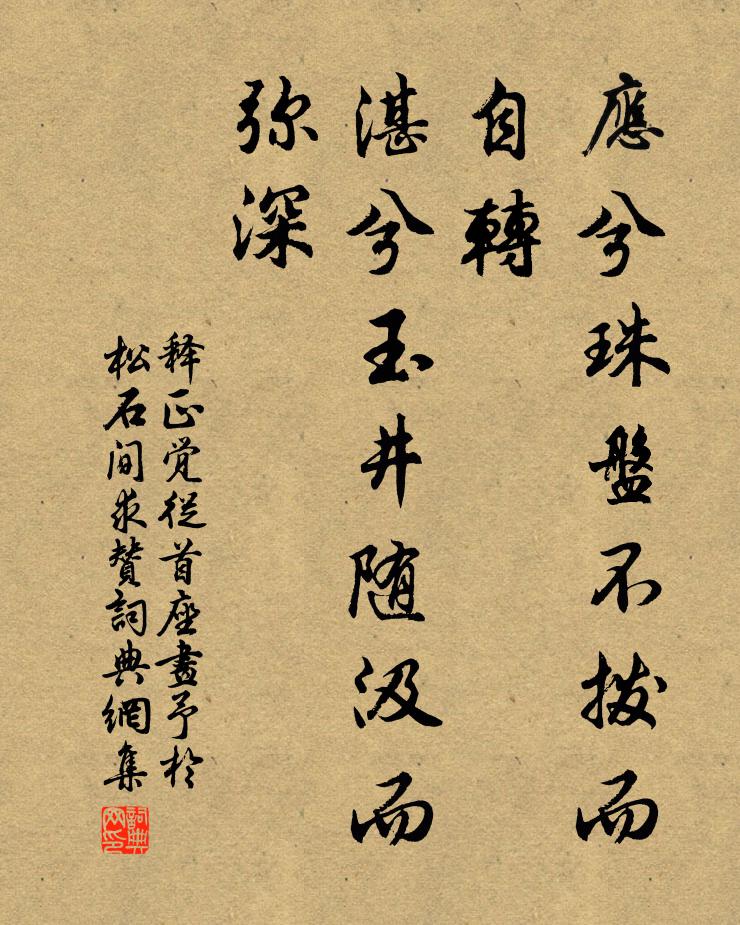 應兮珠盤不撥而
自轉
湛兮玉井随汲而
弥深
释正觉從首座畫予於
松石间求賛詞典網集
詞典
网印